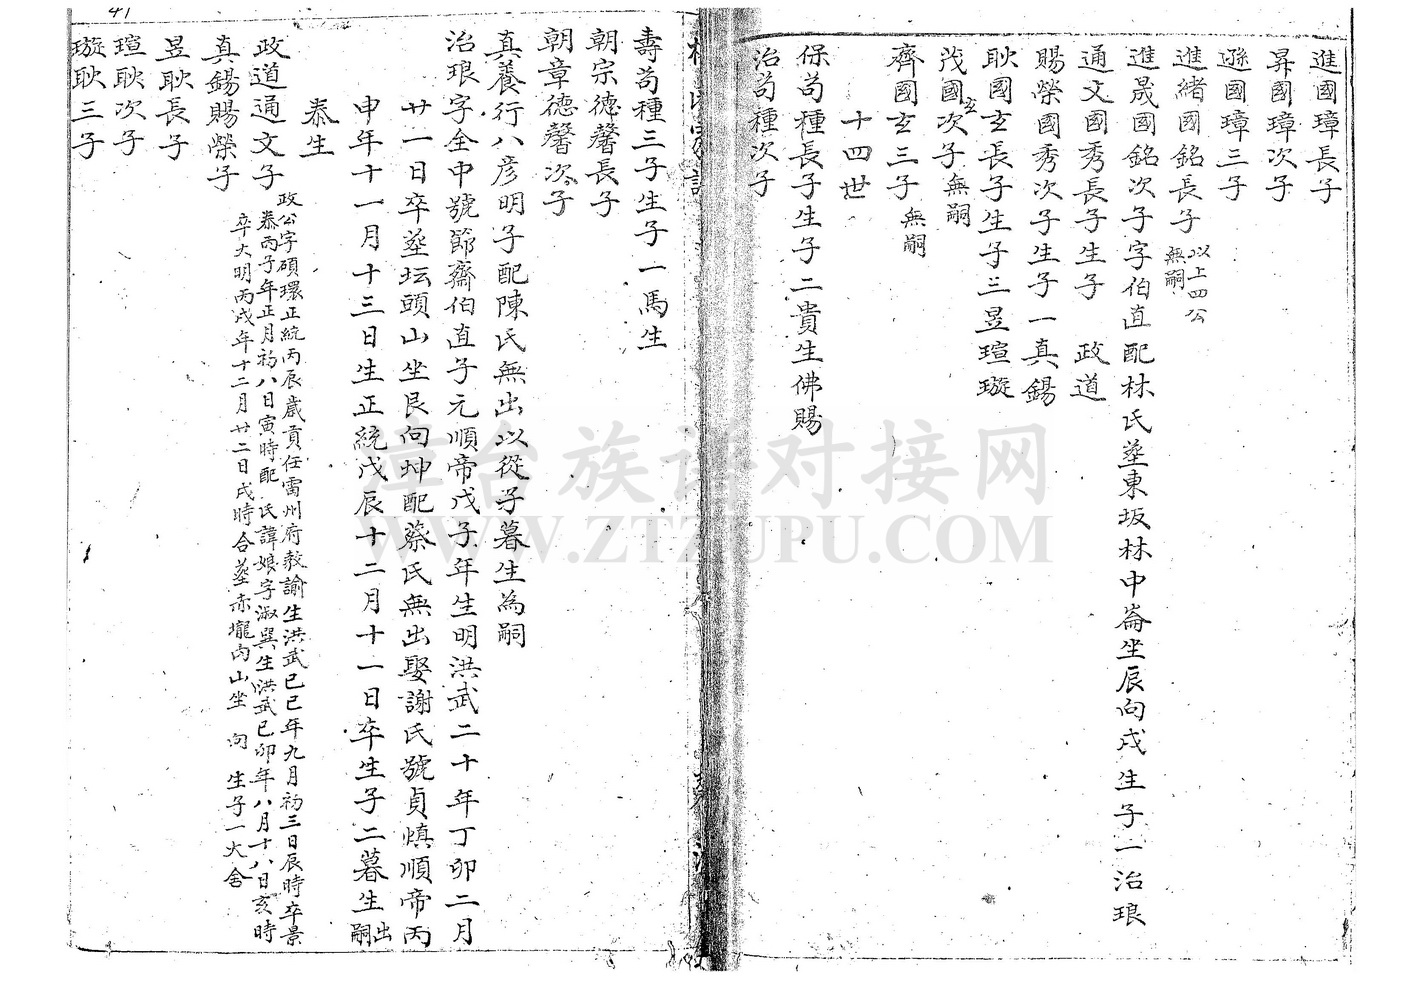 進國璋長子
昇國璋次子
遜國璋三子
進緒國銘長子 以上四公無嗣
進晟國銘次子字伯直配林氏塟東坂林中崙坐辰向戌生子一治琅
通文國秀長子生子 政道
賜榮國秀次子生子一真錫
耿國玄長子生子三昱瑄璇
茂國玄次子無嗣
齊國玄三子 無嗣
十四世
保苟種長子生子二貴生佛賜
治苟種次子
壽苟種三子生子一馬生
朝宗德馨長子
朝章德馨次子
真養行八彦明子配陳氏無出以從子暮生為嗣
治琅字全中號節齋伯直子元順帝戊子年生明洪武二十年丁卯二月
廿一日卒塟坛頭山坐艮向坤配蔡氏無出娶謝氏號貞慎順帝丙
申年十一月十三日生正統戊辰十二月十一日卒生子二暮生出嗣
泰生
政道通文子 政公字碩環正統丙辰歲貢任雷州府教諭生洪武己巳年九月初三日辰時卒景
泰丙子年正月初八日寅時配 氏諱娘字淑巽生洪武己卯年八月十八日亥時
卒大明丙戌年十二月廿二日戌時合塟赤壠内山坐 向 生子一大舍
真錫賜榮子
昱耿長子
瑄耿次子
璇耿三子
41
漳台族谱对接网
WWW.ZTZUPU.COM